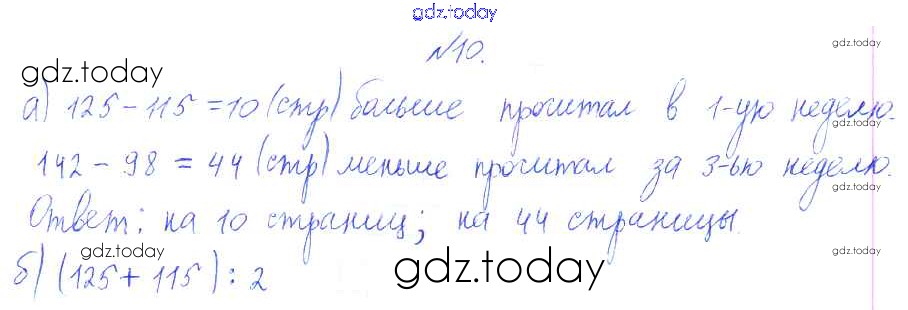 gdz.today
№10.
gdz.today
gdz.today
а) 125 - 115 = 10 (стр) больше прочитал в 1-ую неделю.
gdz.today
142 - 98 = 44 (стр) меньше прочитал за 3-ью неделю.
gdz.today
Ответ: на 10 страниц; на 44 страницы.
gdz.today
gdz.today
gdz.today
б) (125 + 115) : 2